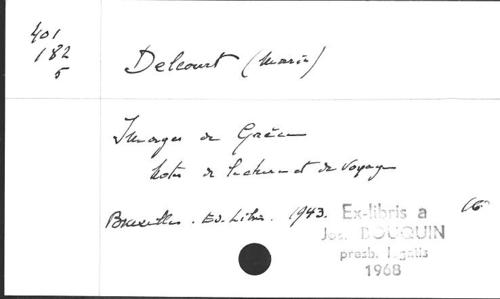 401
182
5
Delcourt (Marie)
Images de Grèce
Notes de lecture et de voyage
Bruxelles. Ed. Libris. 1943.
Ex-libris a
Jos. BOUQUIN
presb. 
1968